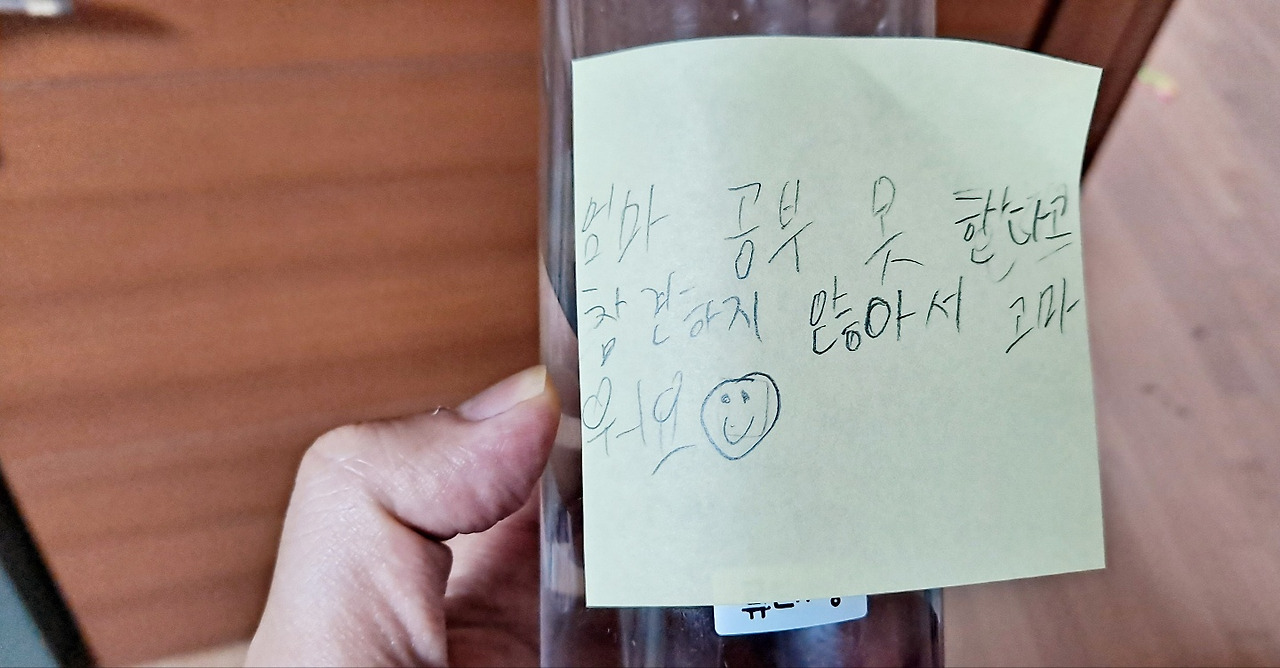 엄마 공부 못 한다고
참견하지 않아서 고마
워요